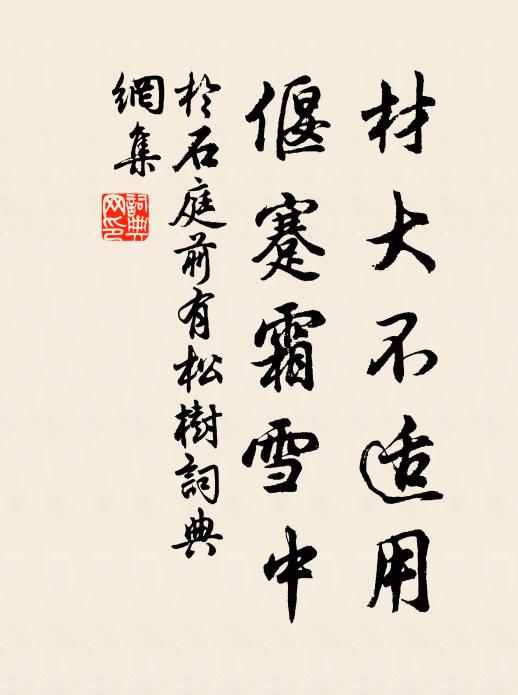 材大不适用
偃蹇霜雪中
於石庭前有松樹詞典
網集
詞典
网印